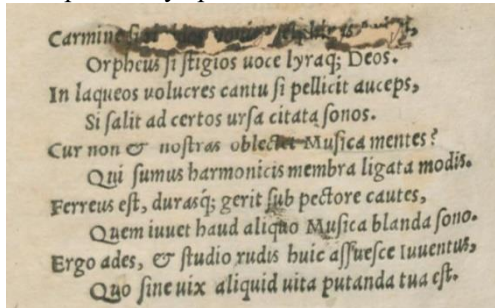 Carmine
Orpheus ſi ſtigios uoce lyraq; Deos.
In laqueos uolucres cantu ſi pellicit auceps,
Si ſalit ad certos urſa citata ſonos.
Cur non & noſtras oblectet Muſica mentes?
Qui ſumus harmonicis membra ligata modis.
Ferreus eſt, duraſq́; gerit ſub pectore cautes,
Quem iuuet haud aliquo Muſica blanda ſono.
Ergo ades, & ſtudio rudis huic aſſueſce Iuuentus,
Quo ſine uix aliquid uita putanda tua eſt.